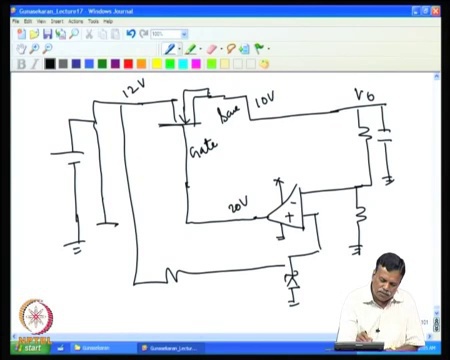 Gunasekaran_Lecture17 - Windows Journal
File Edit View Insert Actions Tools Help
100%
B I
12V
10V
Vo
Gate
20V
-
+
NPTEL
start
Gunasekaran
Gunasekaran_Lectu...